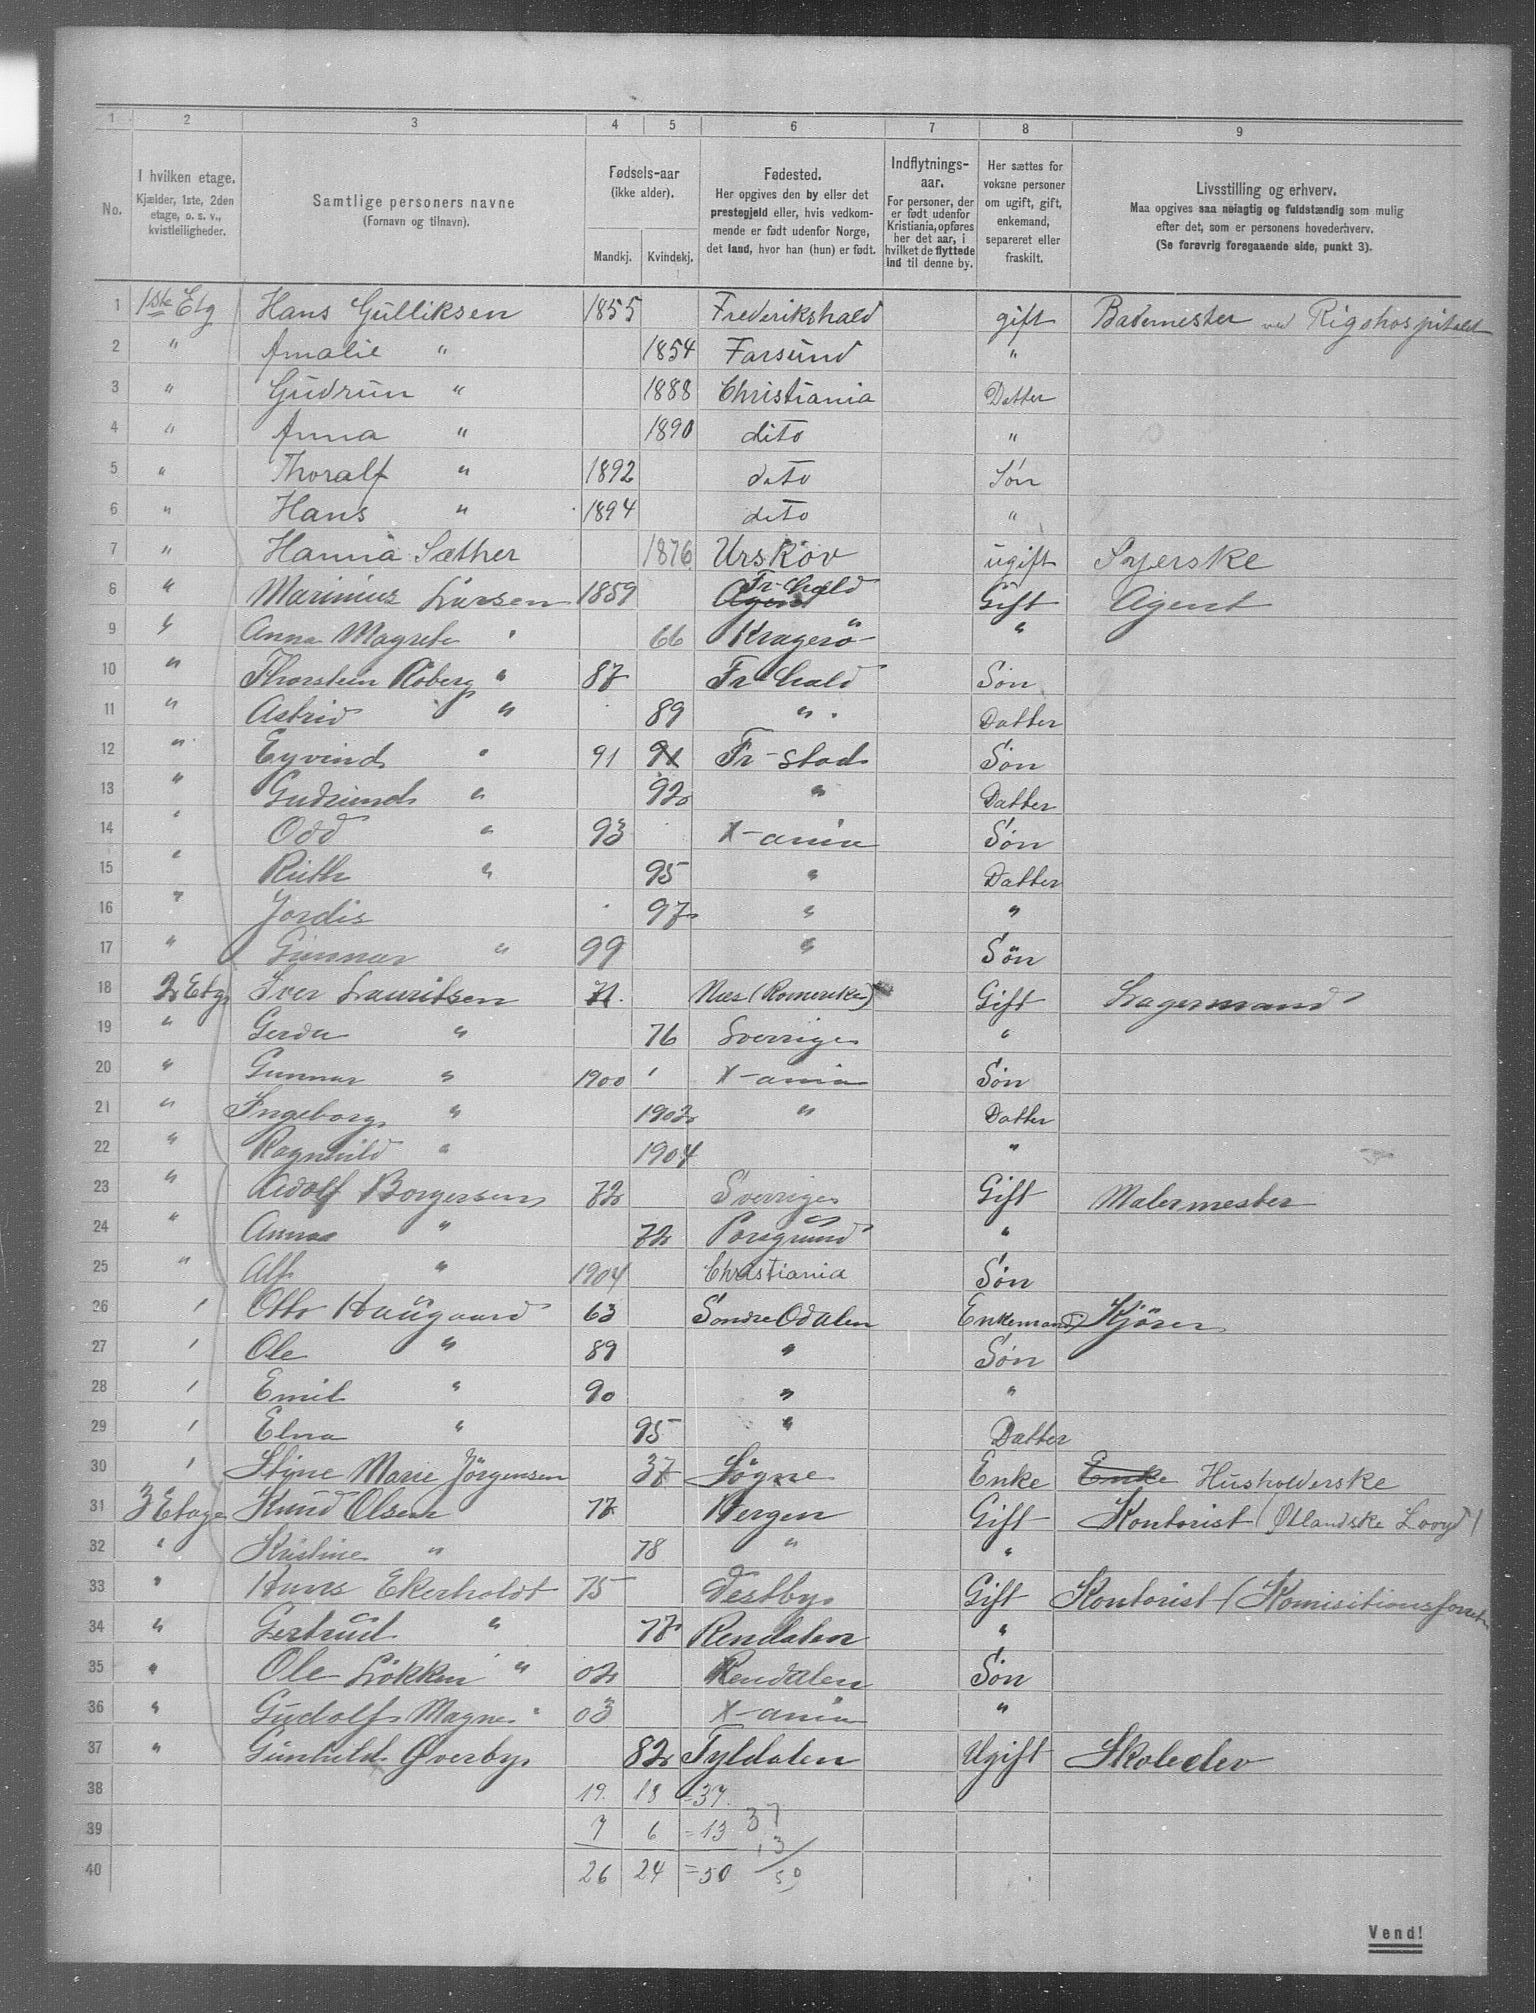 1 2 3 4 5 6 7 8 9
No. I hvilken etage. Kjælder, 1ste, 2den etage, o. s. v., kvistleiligheder. Samtlige personers navne (Fornavn og tilnavn). Fødsels-aar (ikke alder). Mandkj. Kvindekj. Fødested. Her opgives den by eller det prestegjeld eller, hvis vedkommende er født udenfor Norge, det land, hvor han (hun) er født. Indflytnings-aar. For personer, der er født udenfor Kristiania, opføres her det aar, i hvilket de flyttede ind til denne by. Her sættes for voksne personer om ugift, gift, enkemand, separeret eller fraskilt. Livsstilling og erhverv. Maa opgives saa nøiagtig og fuldstændig som mulig efter det, som er personens hovederhverv. (Se forøvrig foregaaende side, punkt 3).
1 1ste Etg Hans Gulliksen 1855 Frederikshald gift Bademester ved Rigshospitalet
2 " Amalie " 1854 Farsund "
3 " Gudrun " 1888 Christiania Datter
4 " Anna " 1890 dito "
5 " Thoralf " 1892 dito Søn
6 " Hans " 1894 dito "
7 " Hanna Sæther 1876 Urskov ugift Syerske
8 " Marinius Larsen 1859 Agent Fr-hald Gift Agent
9 " Anna Magrete " 66 Kragerö "
10 " Thorstein Roberg " 87 Fr-hald Søn
11 " Astrid " 89 " Datter
12 " Eyvind " 91 91 Fr-stad Søn
13 " Gudrund " 92 " Datter
14 " Odd " 93 X-ania Søn
15 " Ruth " 95 " Datter
16 " Jordis 97 " "
17 " Gunnar " 99 " Søn
18 2 Etg Iver Lauritsen 71 Næs (Romerike) Gift Lagermand
19 " Gerda " 76 Sverrige "
20 " Gunnar " 1900 X-ania Søn
21 " Ingeborg " 1902 " Datter
22 " Ragnhild " 1904 "
23 " Adolf Borgersen 72 Sverrige Gift Malermester
24 " Anna " 72 Porsgrund "
25 " Alf " 1904 Christiania Søn
26 " Otto Haugaard 63 Søndre Odalen Enkemand Kjörer
27 " Ole " 89 " Søn
28 " Emil " 90 " "
29 " Elna " 95 " Datter
30 " Stine Marie Jörgensen 37 Søgne Enke Enke Husholderske
31 3 Etage Knud Olsen 77 Bergen Gift Kontorist (Østlandske Lloyd)
32 " Kristine " 78 " "
33 " Hans Ekerholdt 75 Vestby Gift Kontorist
34 " Gertrud " 77 Rendalen "
35 " Ole Løkken " 02 Rendalen Søn
36 " Gudolf Magne " 03 X-ania "
37 " Gunhild Øverby 82 Tyldalen Ugift Skoleelev
38 19 18 = 37
39 7 6 = 13 37
40 26 24 = 50 13 50
Vend!